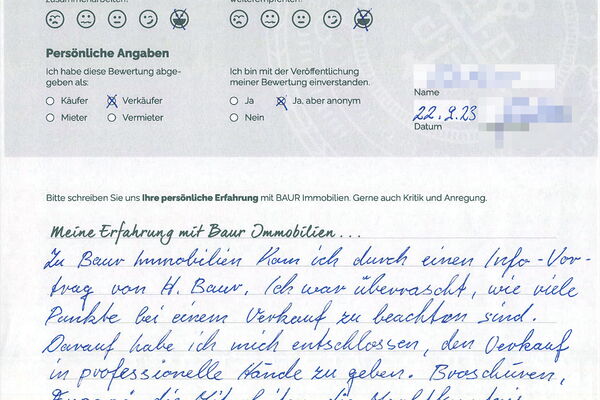 zusammenarbeiten.
weiterempfehlen.
Persönliche Angaben
Ich habe diese Bewertung abge-
geben als:
Käufer
Verkäufer
Mieter
Vermieter
Ich bin mit der Veröffentlichung
meiner Bewertung einverstanden.
Ja
Ja, aber anonym
Nein
Name
22.9.23
Datum
Bitte schreiben Sie uns Ihre persönliche Erfahrung mit BAUR Immobilien. Gerne auch Kritik und Anregung.
Meine Erfahrung mit Baur Immobilien...
Zu Baur Immobilien kam ich durch einen Info-Vor-
trag von H. Baur. Ich war überrascht, wie viele
Punkte bei einem Verkauf zu beachten sind.
Darauf habe ich mich entschlossen, den Verkauf
in professionelle Hände zu geben. Broschüren,
die